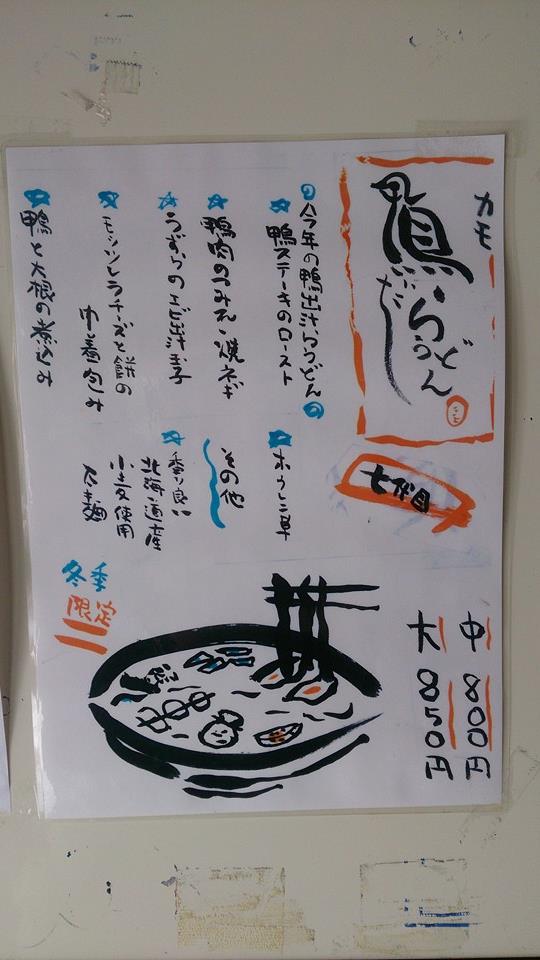 カモ
鴨だし
らうどん
七代目
中 800円
大 850円
今年の鴨出汁らうどん
鴨ステーキのロースト
鴨肉のつみれ 焼ネギ
うずらのエビ出汁玉子
モッツレラチーズと餅の
巾着包み
鴨と大根の煮込み
ホウレン草
その他
香り良い
北海道産
小麦使用
麺
冬季
限定